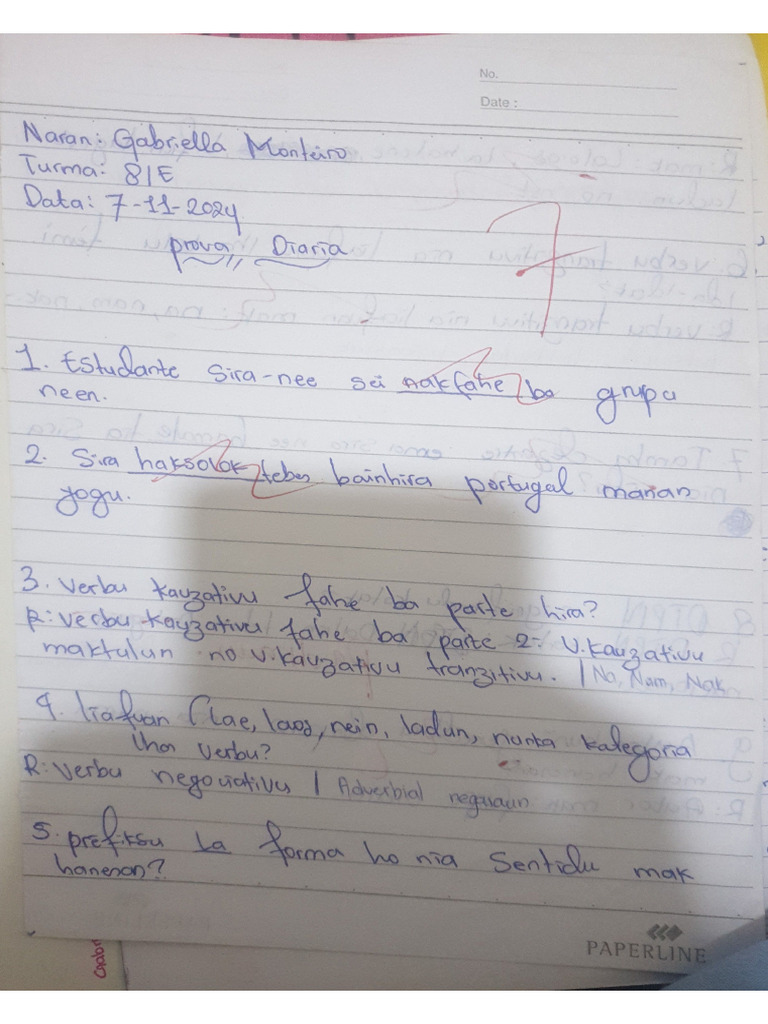 No.
Date :
Naran: Gabriella Monteiro
Turma: 8/E
Data: 7-11-2024
prova Diaria
7
1. Estudante sira-nee sei nakfahe ba grupu
neen.
2. Sira haksolok tebes bainhira portugal manan
jogu.
3. Verbu kauzativu fahe ba parte hira?
R: verbu kauzativu fahe ba parte 2: V. kauzativu
maktulun no v. kauzativu tranzitivu. / Na, Nam, Nak
4. liafuan (lae, laos, nein, ladun, nunka kategoria
ihor verbu?
R: verbu negociativu / Adverbial negasaun
5. prefiksu La forma ho nia Sentidu mak
hanesan?
PAPERLINE